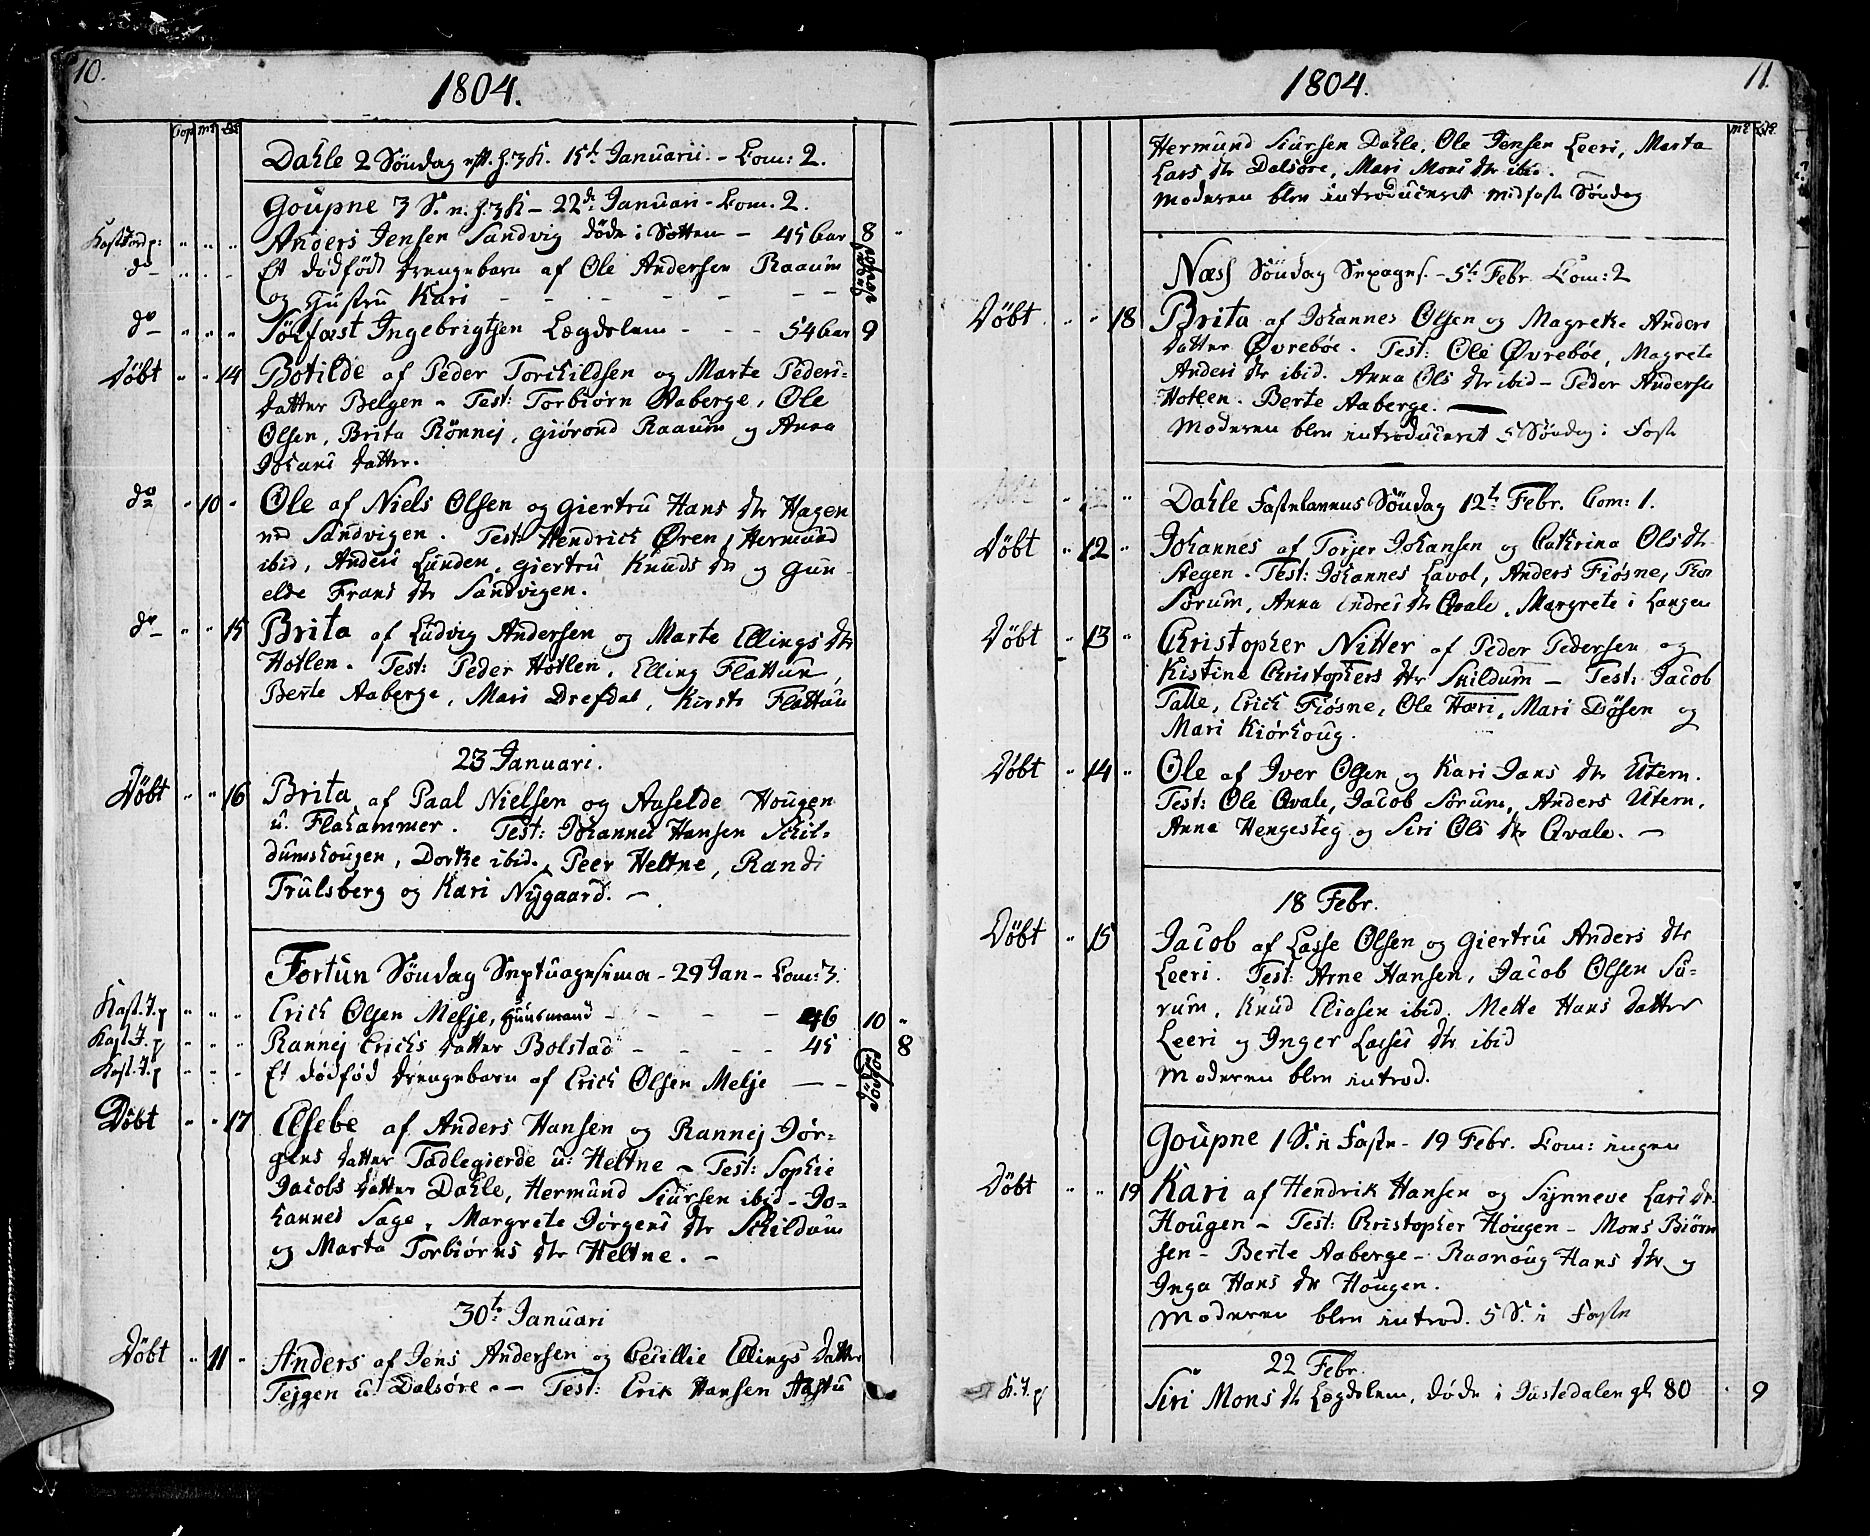 10.
1804.
Cop m: 
Dahle 2 Söndag eft. h. 3 K. 15t Januarii. - Com: 2.
Goupne 3 S. n. h. 3 K - 22de Januari - Com. 2.
Kast Jord p: " " " Anders Jensen Sandvig döde i Sotten - 45 aar 8 "
do " " " Et dödfödt drengebarn af Ole Andersen Raaum
og Hustru Kari - - - - - - dödföd
do " " " Sölfæst Ingebrigtsen Lægdelem - - - 54 aar 9
Döbt " " 14 Botilde af Peder Torchildsen og Marte Peders-
datter Belgen - Test: Torbiørn Aaberge, Ole
Olsen, Brita Rönnej, Giörond Raaum og Anna
Johans datter.
do " 10 " Ole af Niels Olsen og Giertru Hans dtr Hagen
ned Sandvigen. Test: Hendrich Øren, Hermund
ibid, Anders Lunden, Giertru Knuds dr og Gun-
elde Frans dtr Sandvigen.
do " " 15 Brita af Ludvig Andersen og Marte Ellings dtr
Hotlen. Test: Peder Hotlen, Elling Flattun,
Berte Aaberge, Mari Drefdal, Kirsti Flattun
23 Januari.
Döbt " " 16 Brita af Paal Nielsen og Anselde Hougen
u. Flahammer. Test: Johannes Hansen Schil-
dumshougen, Dorthe ibid., Peer Heltne, Randi
Trulsberg og Kari Nygaard. -
Fortun Söndag Septuagesima - 29 Jan - Com: 3.
Kast. J. p " " " Erich Olsen Melje, Huusmand - - - - 46 10 "
Kast J. p " " " Rannej Erichs datter Bolstad - - - - 45 8
Kast. J. p " " " Et dödföd drengebarn af Erich Olsen Melje - - dödföd
Döbt " " 17 Elsebe af Anders Hansen og Rannej Jör-
gens datter Tadlegierde u: Heltne - Test: Sophie
Jacobs datter Dahle, Hermund Siursen ibid - Jo-
hannes Sage, Margrete Jörgens dtr Schildum
og Marta Torbiørns dtr Heltne. -
30t Januari
Döbt " 11 " Anders af Jens Andersen og Cecillie Ellings datter
Tejgen u: Dalsöre. - Test: Erik Hansen Hastu
1804.
11.
Hermund Siursen Dahle, Ole Jensen Leeri, Marta
Lars dtr Dalsöre, Mari Mons dtr ibid.
Moderen blev introduceret midfaste Söndag
Næss Söndag Sexages. - 5t Febr. Com: 2
Döbt " " 18 Brita af Johannes Olsen og Magrete Anders
datter Øvrebøe. Test: Ole Øvrebøe, Magrete
Anders dtr ibid. Anna Ols dtr ibid - Peder Andersen
Hotlen. Berte Aaberge.
Moderen blev introduceret 5 Söndag i Faste
Dahle Fastelavns Söndag 12t Febr. Com: 1.
Döbt " 12 " Johannes af Torjer Johansen og Cathrina Ols dtr
Stegen. Test: Johannes Lavol, Anders Fiösne,
Sorum, Anna Endres dtr Qvale, Margrete i Hangen
Döbt " 13 " Christopher Nitter af Peder Pedersen og
Kistina Christophers dtr Skildum - Test: Jacob
Talle, Erich Fiösne, Ole Hæri, Mari Dösen og
Mari Kiörhoug.
Döbt " 14 " Ole af Iver Olsen og Kari Jans dtr Utern.
Test: Ole Qvale, Jacob Sorum, Anders Utern,
Anne Hengesteg og Siri Ols dtr Qvale. -
18 Febr.
Döbt " 15 Jacob af Lasse Olsen og Giertru Anders dtr
Leeri. Test: Arne Hansen, Jacob Olsen So-
rum, Knud Eliasen ibid. Mette Hans datter
Leeri og Inger Lasses dtr ibid
Moderen blev introd.
Goupne 1 S. i Faste - 19 Febr. Com: ingen
Döbt " " 19 Kari af Hendrik Hansen og Synneve Lars dr.
Hougen - Test: Christopher Hougen - Mons Biörn
sen - Berte Aaberge - Raanoug Hans dtr og
Inga Hans dr Hougen.
Moderen blev introd. 5 S. i Faste
22 Febr.
K. J. p Siri Mons dr Lægdelem, döde i Justedalen gl. 80 " 9